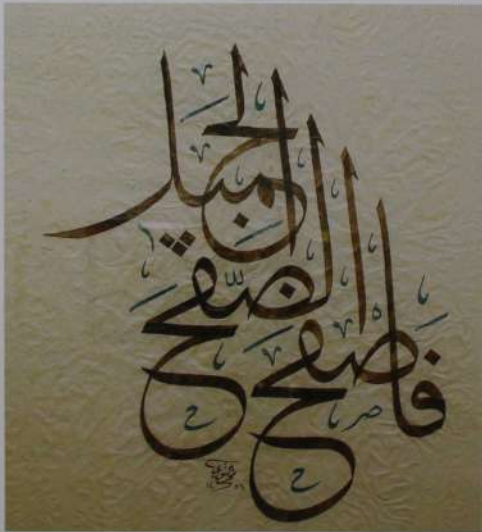 فَاصْفَحِ الصَّفْحَ الْجَمِيلَ